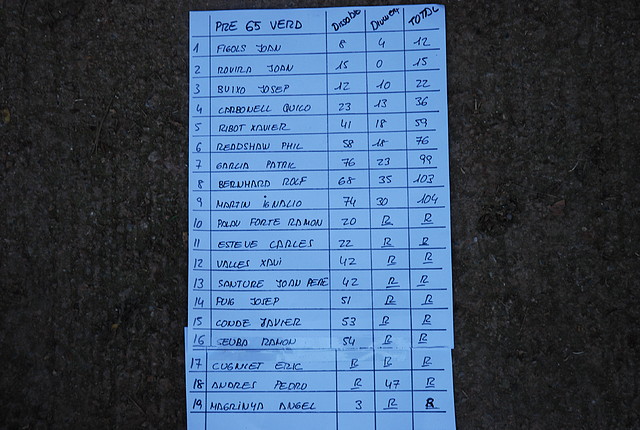 PRE 65 VERD Dissabte Diumen TOTAL
1 FIGOLS JOAN 8 4 12
2 ROVIRA JOAN 15 0 15
3 BUIXO JOSEP 12 10 22
4 CARBONELL QUICO 23 13 36
5 RIBOT XAVIER 41 18 59
6 READSHAW PHIL 58 18 76
7 GARCIA PATRIC 76 23 99
8 BERNHARD ROLF 68 35 103
9 MARTIN IGNACIO 74 30 104
10 POLDU FORTE RAMON 20 R R
11 ESTEVE CARLES 22 R R
12 VALLES XAVI 42 R R
13 SANTURE JOAN PERE 42 R R
14 PUIG JOSEP 51 R R
15 CONDE JAVIER 53 R R
16 SEUBA RAMON 54 R R
17 CUGNIET ERIC R R R
18 ANDRES PEDRO R 47 R
19 MAGRINYA ANGEL 3 R R